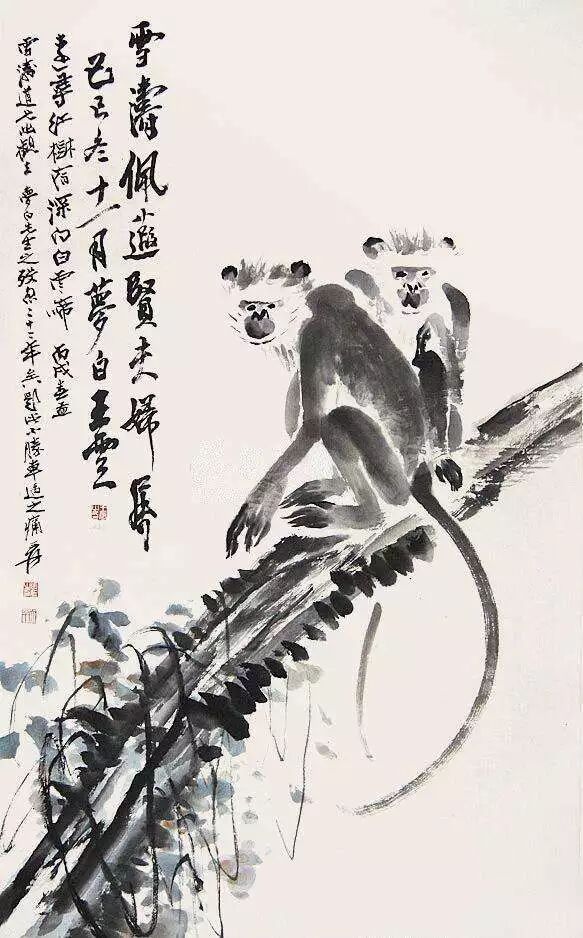 雪濤佩蘧賢夫婦屬
己巳冬十一月夢白王雲
尋紅樹宿深向白雲啼 丙戌
雪濤道兄出觀 夢白先生之殁 十二年矣對此不勝車過之痛 爰